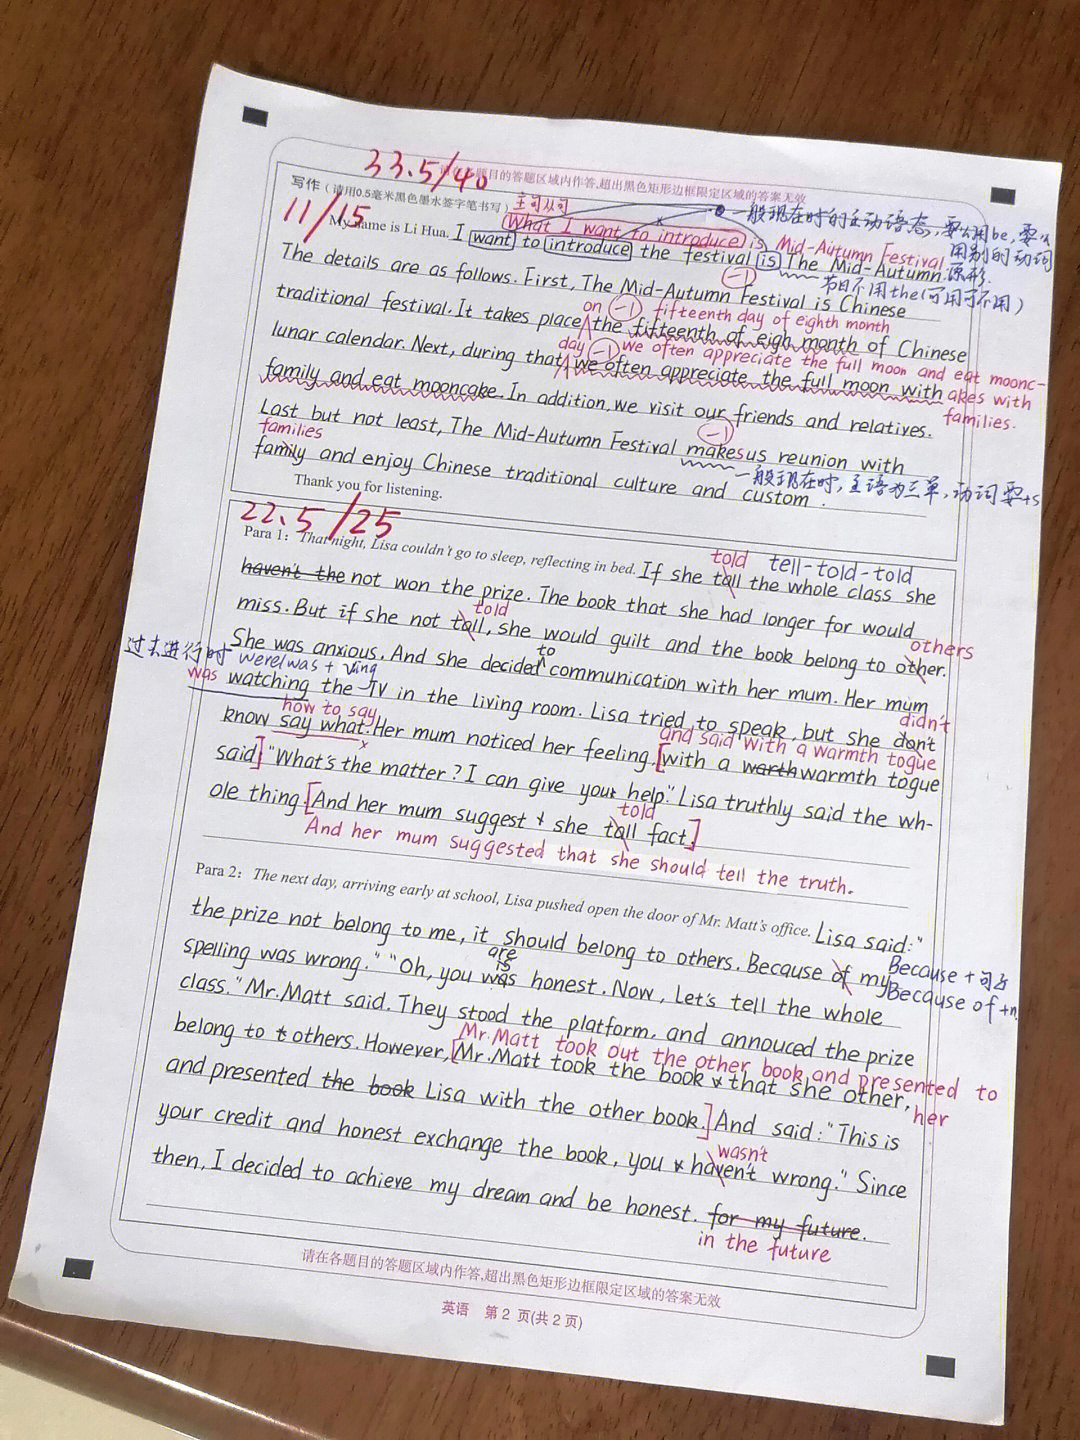 33.5/40
请在各题目的答题区域内作答,超出黑色矩形边框限定区域的答案无效
写作(请用0.5毫米黑色墨水签字笔书写)
11/15
主句从句
一般现在时的主动语态,要么用be,要么用别的动词原形.
What I want to introduce is Mid-Autumn Festival
My name is Li Hua. I want to introduce the festival is The Mid-Autumn.
节日不用the(可用可不用)
The details are as follows. First, The Mid-Autumn Festival is Chinese
-1
on -1 fifteenth day of eighth month
traditional festival. It takes place the fifteenth of eigh month of Chinese
day -1 we often appreciate the full moon and eat moonc-
lunar calendar. Next, during that we often appreciate the full moon with
akes with families.
family and eat mooncake. In addition, we visit our friends and relatives.
Last but not least, The Mid-Autumn Festival makes us reunion with
-1
families
family and enjoy Chinese traditional culture and custom.
一般现在时,主语为三单,动词要+s
Thank you for listening.
22.5/25
Para 1: That night, Lisa couldn't go to sleep, reflecting in bed. If she tall the whole class she
told tell-told-told
haven't the not won the prize. The book that she had longer for would
told
miss. But if she not tall, she would guilt and the book belong to other.
others
过去进行时 were/was + ving
to
She was anxious. And she decided communication with her mum. Her mum
was
watching the TV in the living room. Lisa tried to speak, but she don't
didn't
how to say
know say what. Her mum noticed her feeling. [with a warth warmth togue
and said with a warmth togue
said] "What's the matter? I can give your help." Lisa truthly said the wh-
told
ole thing. [And her mum suggest she tall fact.]
And her mum suggested that she should tell the truth.
Para 2: The next day, arriving early at school, Lisa pushed open the door of Mr. Matt's office. Lisa said: "
the prize not belong to me, it should belong to others. Because of my
Because + 句子
Because of +n.
are
is
spelling was wrong." "Oh, you was honest. Now, Let's tell the whole
class." Mr. Matt said. They stood the platform. and annouced the prize
Mr. Matt took out the other book and presented to her
belong to others. However, [Mr. Matt took the book that she other,
and presented the book Lisa with the other book.] And said: "This is
wasn't
your credit and honest exchange the book, you haven't wrong." Since
then, I decided to achieve my dream and be honest. for my future.
in the future
请在各题目的答题区域内作答,超出黑色矩形边框限定区域的答案无效
英语 第 2 页(共 2 页)